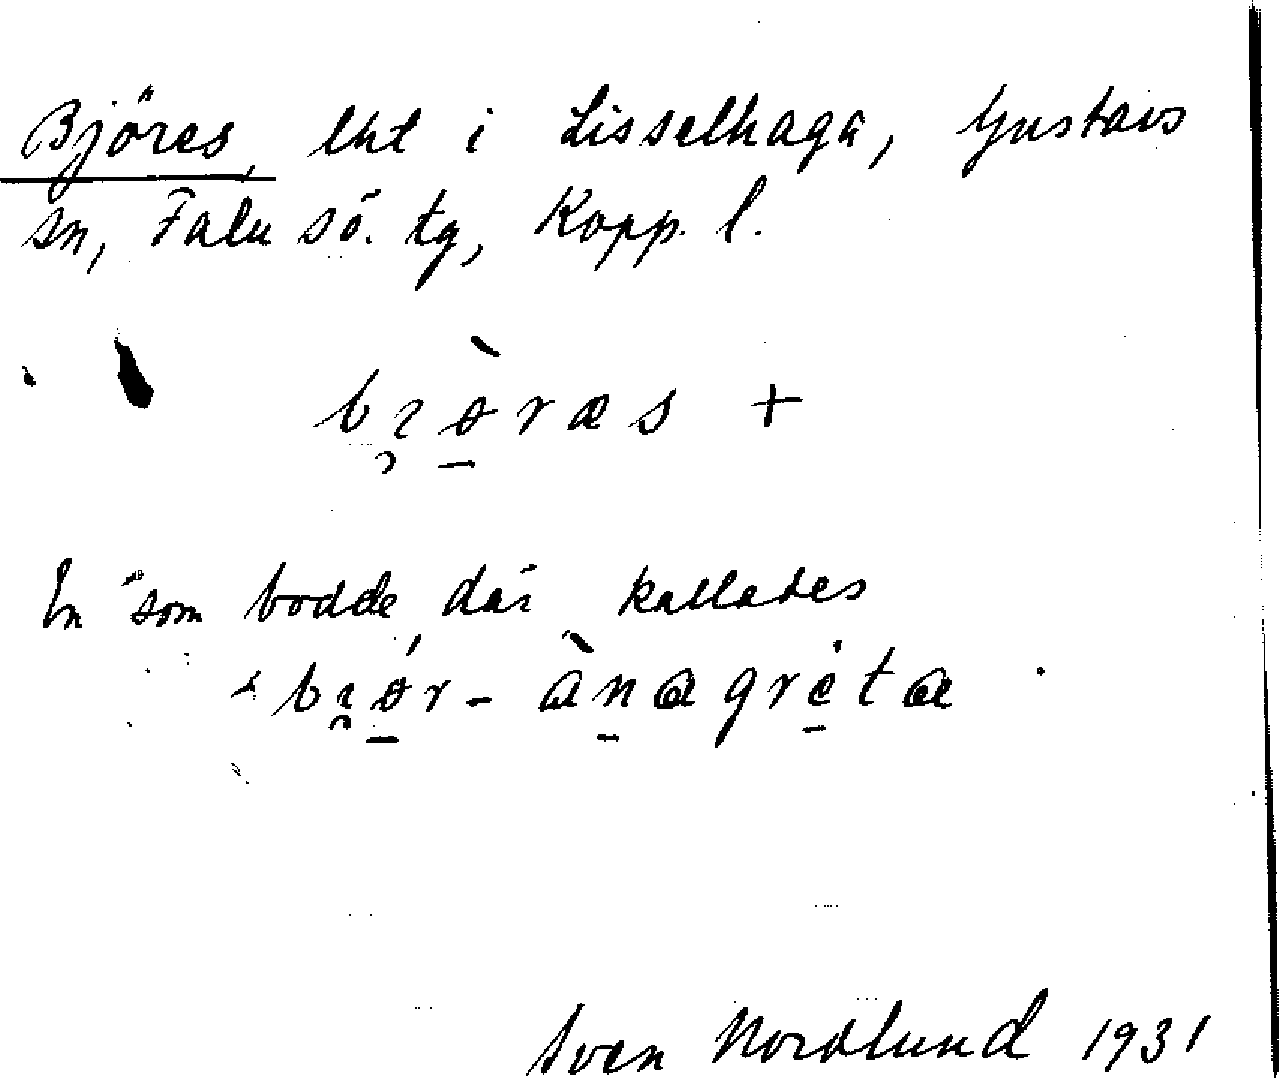 Björes, lht i Lisselhaga, Gustavs
sn, Falu sö. tg, Kopp. l.
bɩ̯ø̀ræs +
En som bodde där kallades
bɩ̯ǿr-ànagréta.
Sven Nordlund 1931